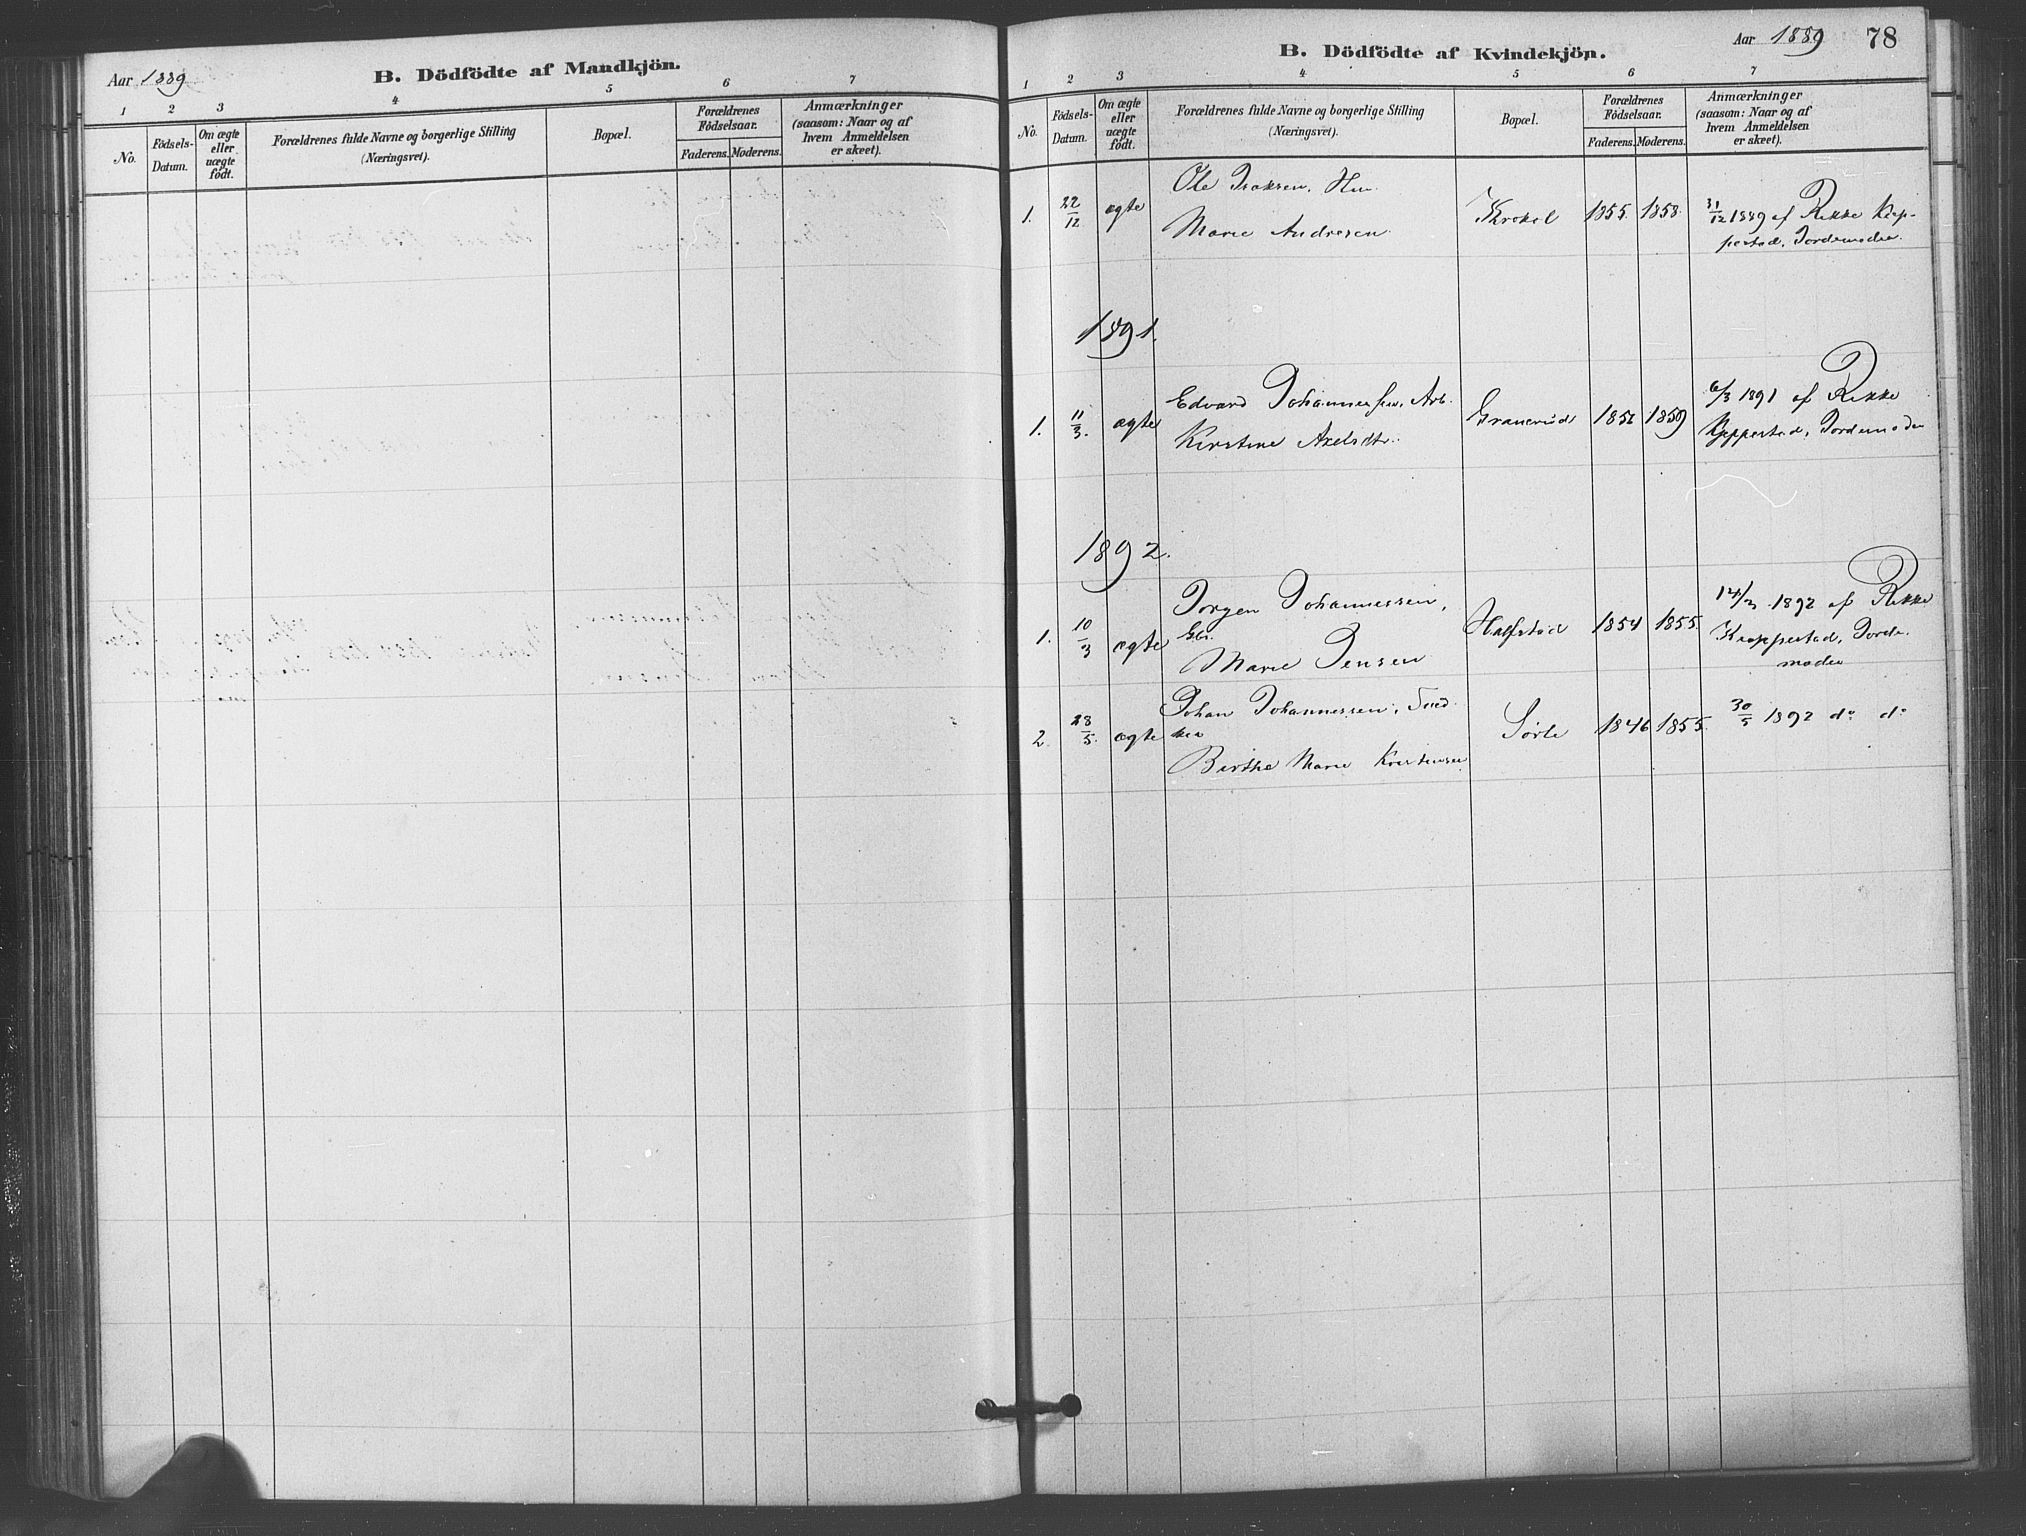 Aar 1889
B. Dödfödte af Mandkjön.
1 2 3 4 5 6 7
No.
Födsels-
Datum.
Om ægte
eller
uægte
födt.
Forældrenes fulde Navne og borgerlige Stilling
(Næringsvei).
Bopæl.
Forældrenes
Födselsaar.
Faderens. Moderens.
Anmærkninger
(saasom: Naar og af
hvem Anmeldelsen
er skeet).
B. Dödfödte af Kvindekjön.
Aar 1889 78
1 2 3 4 5 6 7
No.
Födsels-
Datum.
Om ægte
eller
uægte
födt.
Forældrenes fulde Navne og borgerlige Stilling
(Næringsvei).
Bopæl.
Forældrenes
Födselsaar.
Faderens. Moderens.
Anmærkninger
(saasom: Naar og af
hvem Anmeldelsen
er skeet).
Ole Isaksen,
1. 22/12 ægte Marie Andresen Krokol 1855. 1858. 31/12 1889 af Rikke Kjep-
pestad, Jordemoder.
1891.
Edvard Johannessen, Arb.
1. 11/3. ægte Kirstine Axelsdtr. Graneröd 1859 1891 af Rikke
Kjeppestad, Jordemoder
1892.
Jorgen Johannessen,
Gbr.
1. 10/3 ægte Marie Jensen Halfstad 1854 1855. 14/3 1892 af Rikke
Kjeppestad, Jorde-
moder
Johan Johannessen, Sned-
ker
2. 28/5. ægte Birthe Marie Kristensen Sörle 1846 1855. 30/5 1892 do do